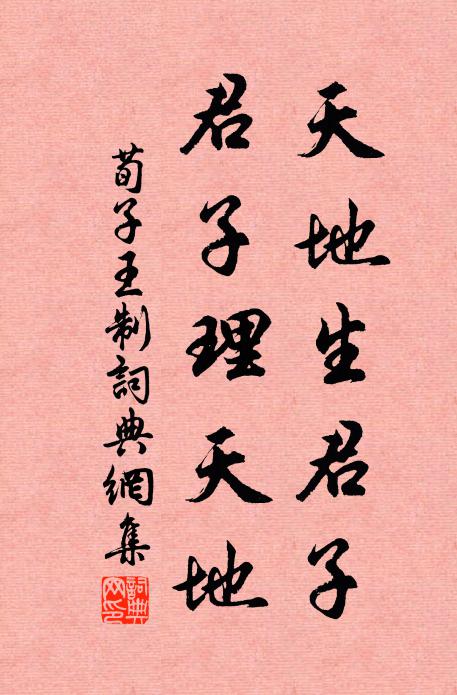 天地生君子
君子理天地
荀子王制詞典網集
詞典網印